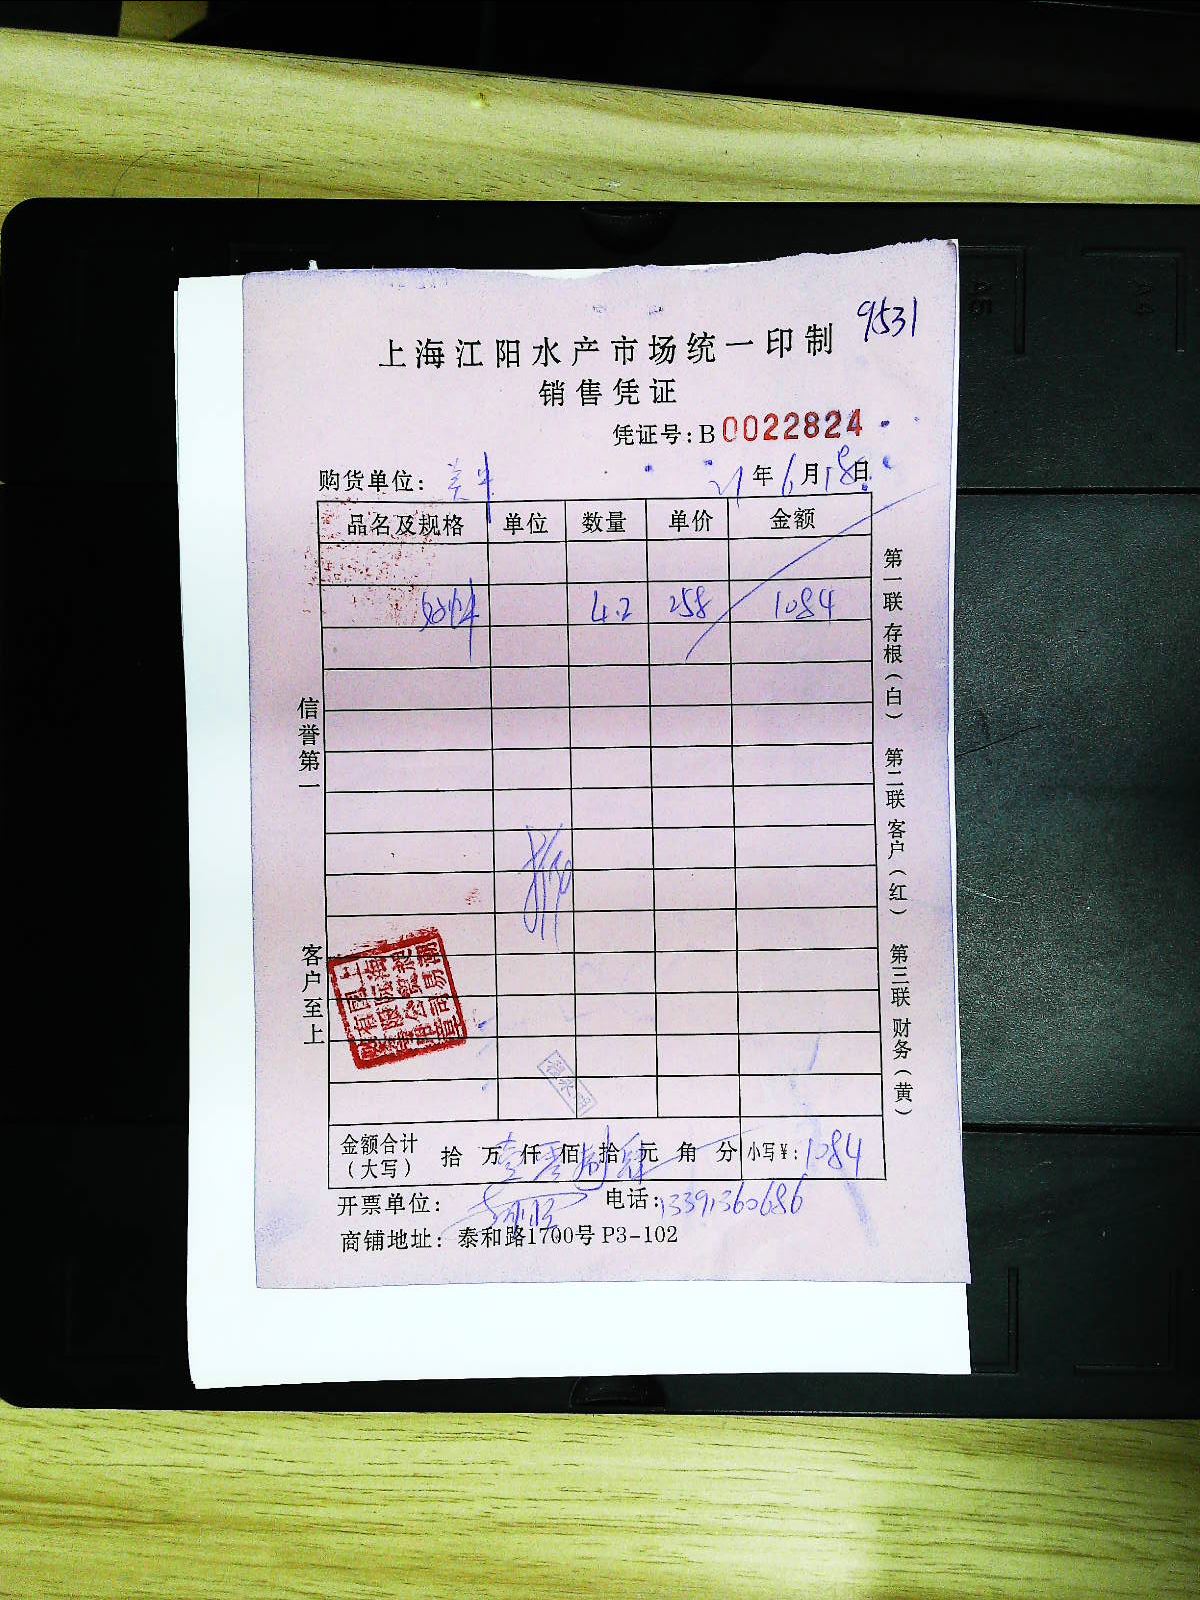 9531
上海江阳水产市场统一印制
销售凭证
凭证号:B0022824
购货单位: 21年6月18日
品名及规格 单位 数量 单价 金额
4.2 258 1084
信誉第一
客户至上
第一联 存根(白) 第二联 客户(红) 第三联 财务(黄)
金额合计(大写) 拾 万 仟 佰 拾 元 角 分 小写¥: 1084
开票单位: 电话: 13391360686
商铺地址: 泰和路1700号 P3-102